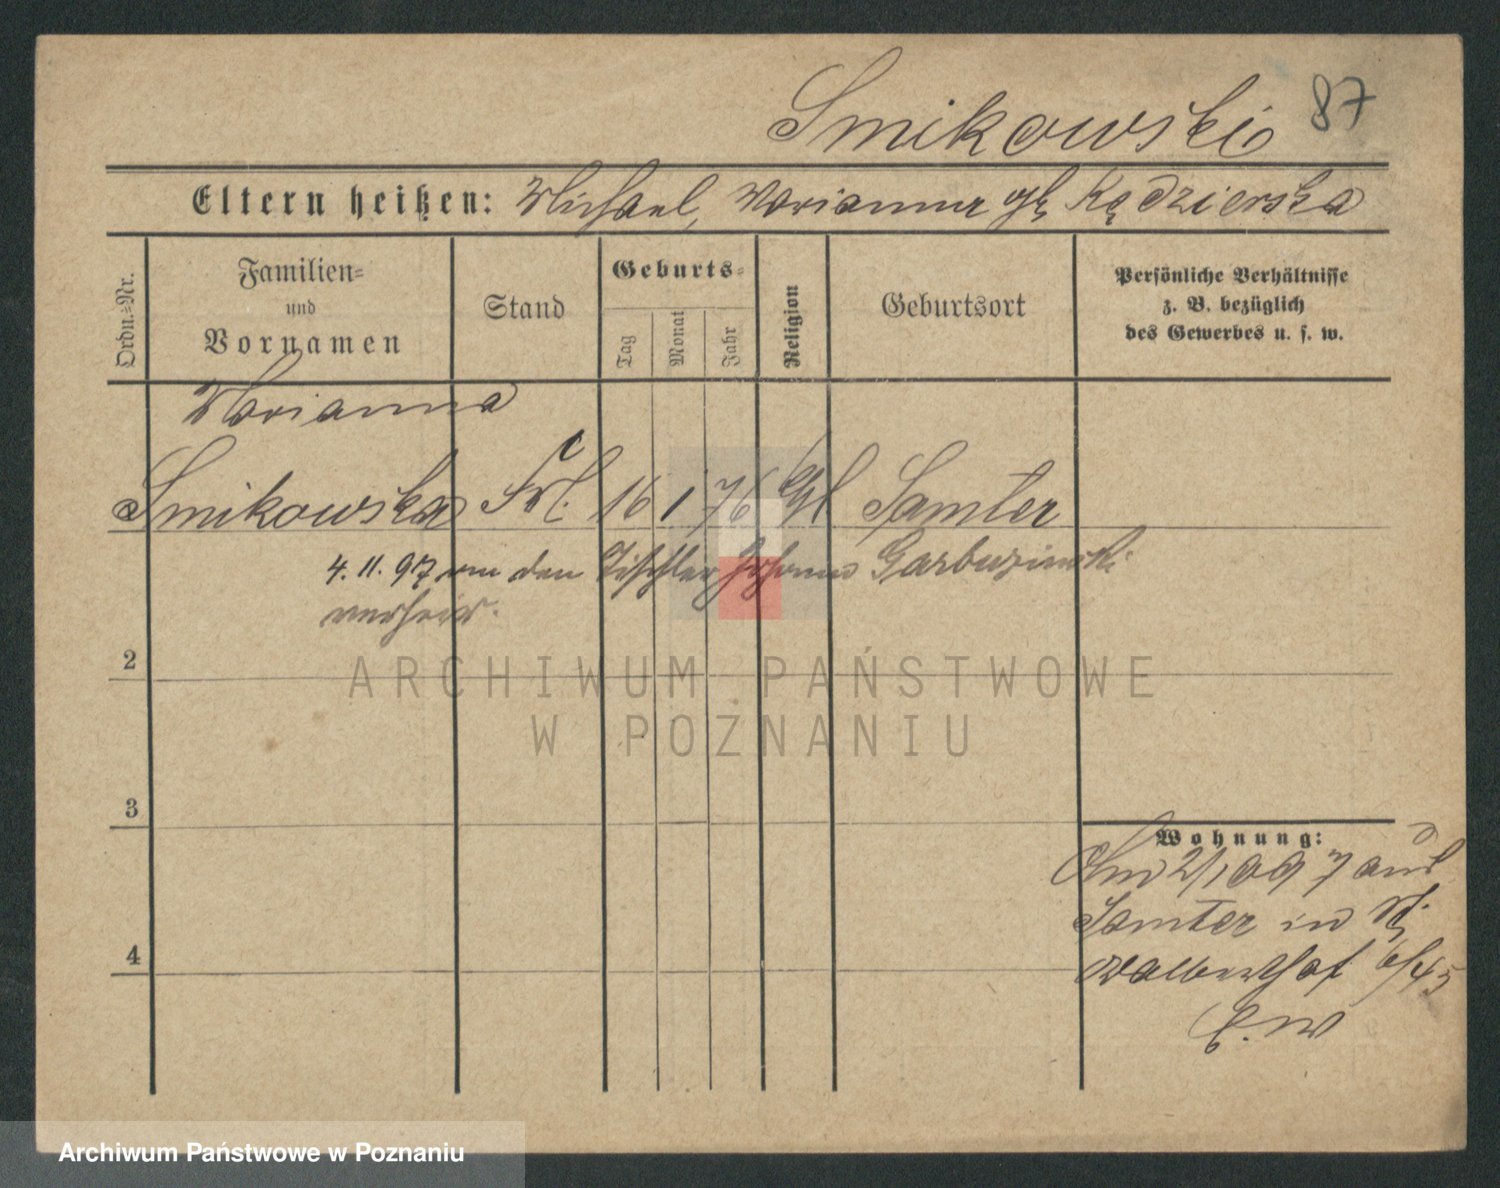 Smikowski 87
Eltern heißen: Michael, Marianna geb. Kędzierska
Ordn.=Nr.
Familien=
und
Vornamen
Stand
Geburts=
Tag
Monat
Jahr
Religion
Geburtsort
Persönliche Verhältnisse
z. B. bezüglich
des Gewerbes u. s. w.
Marianna
Smikowska Frl. 16 1 76 Samter
4. 11. 97 den Tischler Johann Garbuzinski
verheir.
2
3
4
Wohnung:
Am aus
Samter in St.
6/45
ARCHIWUM PAŃSTWOWE
W POZNANIU
Archiwum Państwowe w Poznaniu